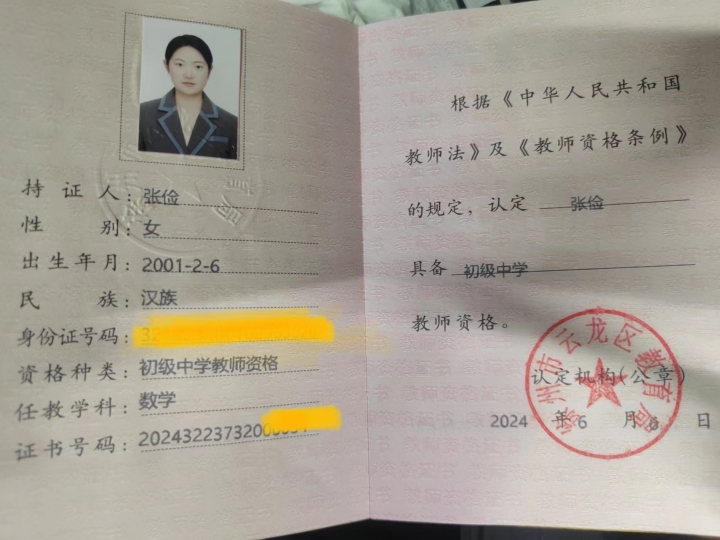 持证人：张俭
性别：女
出生年月：2001-2-6
民族：汉族
身份证号码：
资格种类：初级中学教师资格
任教学科：数学
证书号码：20243223732000
根据《中华人民共和国
教师法》及《教师资格条例》
的规定，认定 张俭
具备 初级中学
教师资格。
认定机构(公章)
2024 年 6 月 6 日
徐州市云龙区教育局